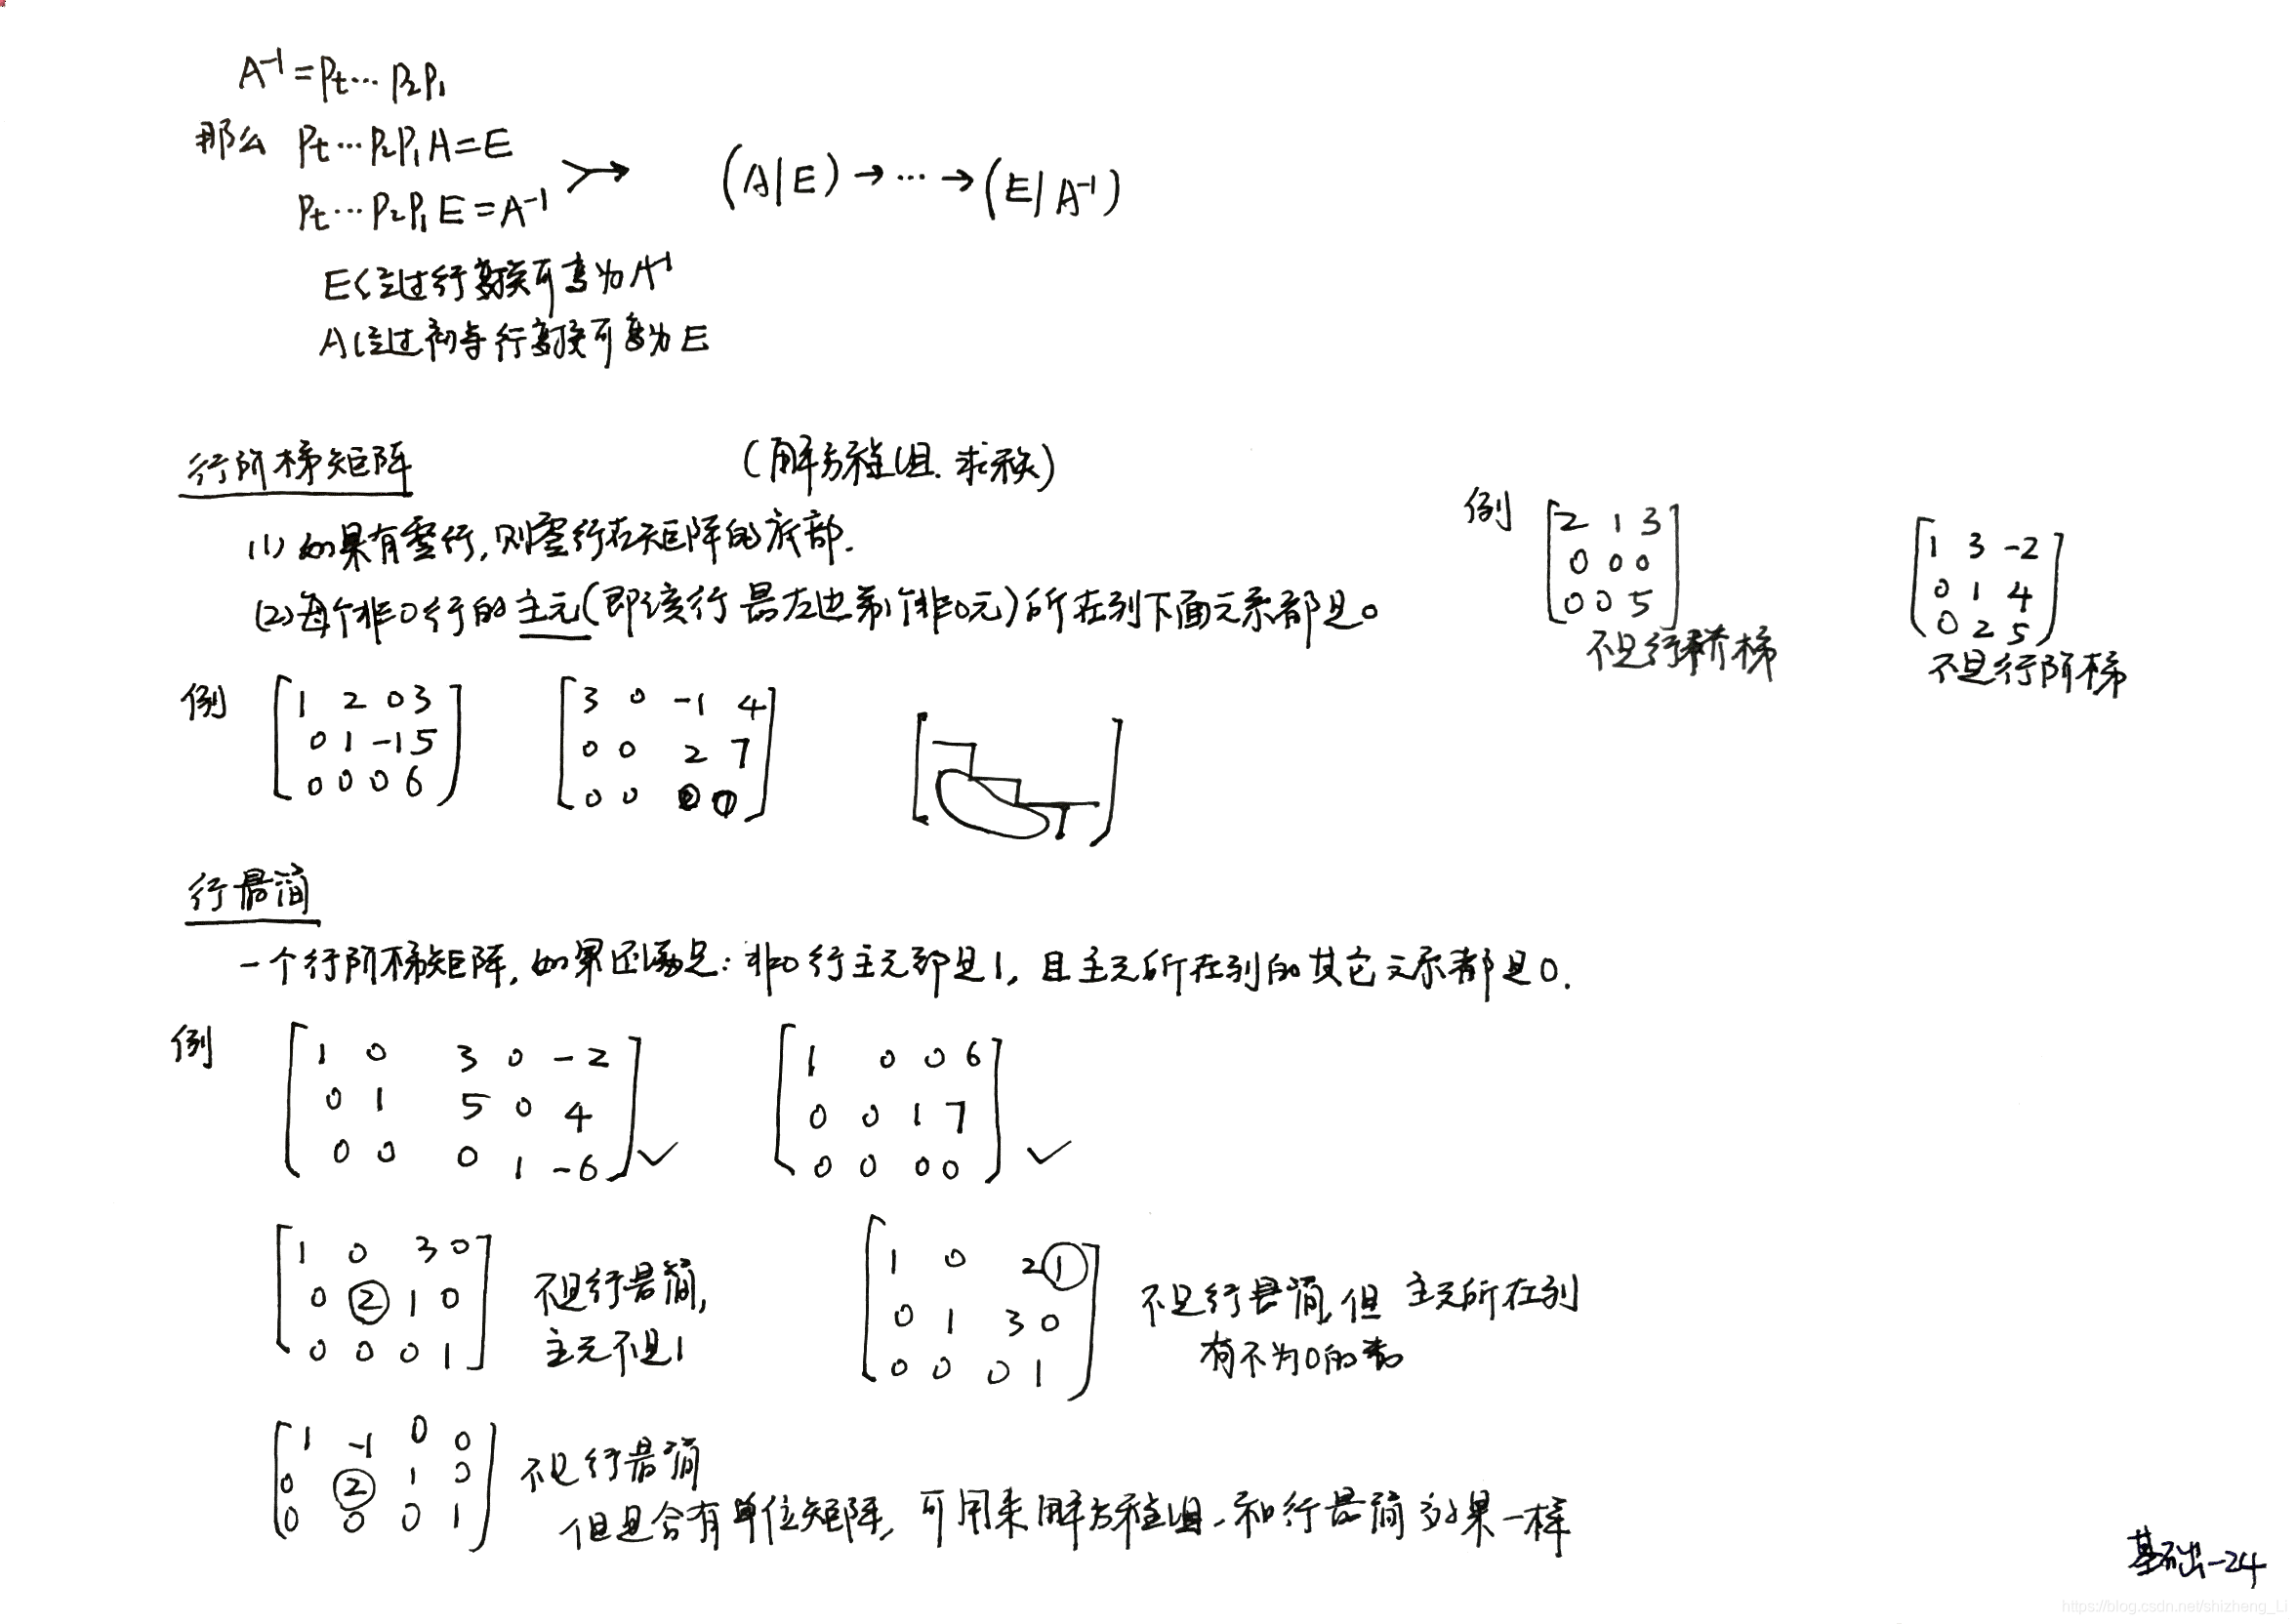 A⁻¹=Pt…P₂P₁
那么 Pt…P₂P₁A=E
Pt…P₂P₁E=A⁻¹
(A|E)→…→(E|A⁻¹)
E经过行变换可变为A⁻¹
A经过初等行变换可变为E
行阶梯矩阵 (解方程组.求秩)
(1) 如果有零行,则零行在矩阵的底部.
(2)每个非0行的主元(即该行最左边第1个非0元)所在列下面元素都是0
例
2 1 3
0 0 0
0 0 5
不是行阶梯
1 3 -2
0 1 4
0 2 5
不是行阶梯
例
1 2 0 3
0 1 -1 5
0 0 0 6
3 0 -1 4
0 0 2 7
0 0 0 0
行最简
一个行阶梯矩阵,如果还满足:非0行主元都是1,且主元所在列的其它元素都是0.
例
1 0 3 0 -2
0 1 5 0 4
0 0 0 1 -6
✓
1 0 0 6
0 0 1 7
0 0 0 0
✓
1 0 3 0
0 ② 1 0
0 0 0 1
不是行最简,
主元不是1
1 0 2 ①
0 1 3 0
0 0 0 1
不是行最简,但主元所在列
有不为0的数
1 -1 0 0
0 ② 1 0
0 0 0 1
不是行最简
但是含有单位矩阵,可用来解方程组.和行最简效果一样
基础-24
https://blog.csdn.net/shizheng_Li